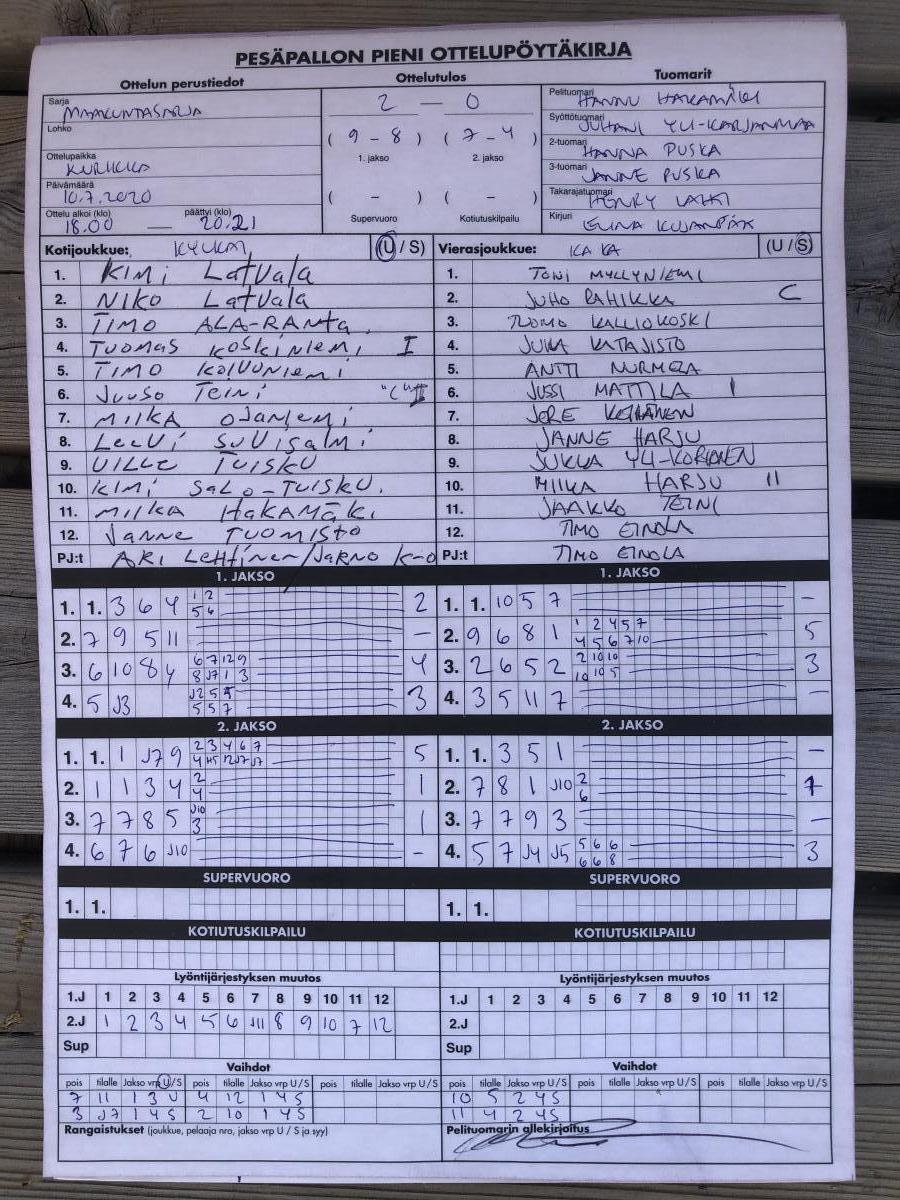 PESÄPALLON PIENI OTTELUPÖYTÄKIRJA
Ottelun perustiedot
Sarja
MAAKUNTASARJA
Lohko
Ottelupaikka
KURIKKA
Päivämäärä
10.7.2020
Ottelu alkoi (klo) päättyi (klo)
18.00 — 20.21
Ottelutulos
2 — 0
( 9 - 8 ) ( 7 - 4 )
1. jakso 2. jakso
( - ) ( - )
Supervuoro Kotiutuskilpailu
Tuomarit
Pelituomari HANNU HAKAMÄKI
Syöttötuomari JUHANI YLI-KARJANMAA
2-tuomari HANNA PUSKA
3-tuomari JANNE PUSKA
Takarajatuomari HENRY
Kirjuri ELINA KUJANPÄÄ
Kotijoukkue: (U / S)
1. KIMI LATVALA
2. NIKO LATVALA
3. TIMO ALA-RANTA
4. TUOMAS KOSKINIEMI I
5. TIMO KOIVUNIEMI
6. JUUSO TEINI "C" II
7. MIIKA OJANIEMI
8. LEEVI SUVISALMI
9. VILLE TUISKU
10. KIMI SALO-TUISKU.
11. MIIKA HAKAMÄKI
12. JANNE TUOMISTO
PJ:t ARI LEHTINEN/JARNO K-O
Vierasjoukkue: KAKA (U / S)
1. TONI MYLLYNIEMI
2. JUHO RAHIKKA C
3. TUOMO KALLIOKOSKI
4. JUKA KATAJISTO
5. ANTTI NURMELA
6. JUSSI MATTILA I
7. JERE
8. JANNE HARJU
9. JUKKA YLI-KORHONEN
10. MIIKA HARJU II
11. JAAKKO TEINI
12. TIMO EINOLA
PJ:t TIMO EINOLA
1. JAKSO
1. 1. 3 6 4 1 2 2
5 6
2. 7 9 5 11 —
3. 6 10 8 4 6 7 12 9 4
8 J7 1 3
4. 5 J3 J2 5 5 3
5 5 7
1. JAKSO
1. 1. 10 5 7 —
2. 9 6 8 1 1 2 4 5 7 5
4 5 6 7 10
3. 2 6 5 2 2 10 10 3
10 10 5
4. 3 5 11 7 —
2. JAKSO
1. 1. 1 J7 9 2 3 4 6 7 5
4 J15 12 J7 J7
2. 1 1 3 4 2 1
4
3. 7 7 8 5 J10 1
3
4. 6 7 6 J10 -
2. JAKSO
1. 1. 3 5 1 —
2. 7 8 1 J10 2 1
6
3. 7 7 9 3 —
4. 5 7 J4 J5 5 6 6 3
6 6 8
SUPERVUORO
1. 1.
SUPERVUORO
1. 1.
KOTIUTUSKILPAILU
KOTIUTUSKILPAILU
Lyöntijärjestyksen muutos
1.J 1 2 3 4 5 6 7 8 9 10 11 12
2.J 1 2 3 4 5 6 J11 8 9 10 7 12
Sup
Lyöntijärjestyksen muutos
1.J 1 2 3 4 5 6 7 8 9 10 11 12
2.J
Sup
Vaihdot
pois tilalle Jakso vrp U/S pois tilalle Jakso vrp U/S pois tilalle Jakso vrp U/S
7 11 1 3 U 4 12 1 4 S
3 J7 1 4 S 2 10 1 4 S
Vaihdot
pois tilalle Jakso vrp U/S pois tilalle Jakso vrp U/S pois tilalle Jakso vrp U/S
10 5 2 4 S
11 4 2 4 S
Rangaistukset (joukkue, pelaaja nro, jakso vrp U / S ja syy)
Pelituomarin allekirjoitus